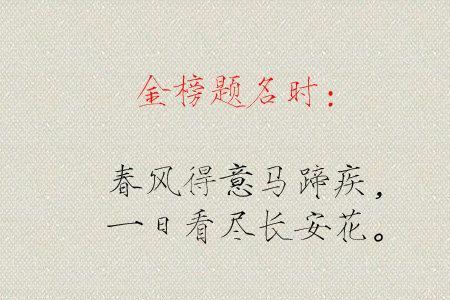 金榜题名时：
春风得意马蹄疾，
一日看尽长安花。